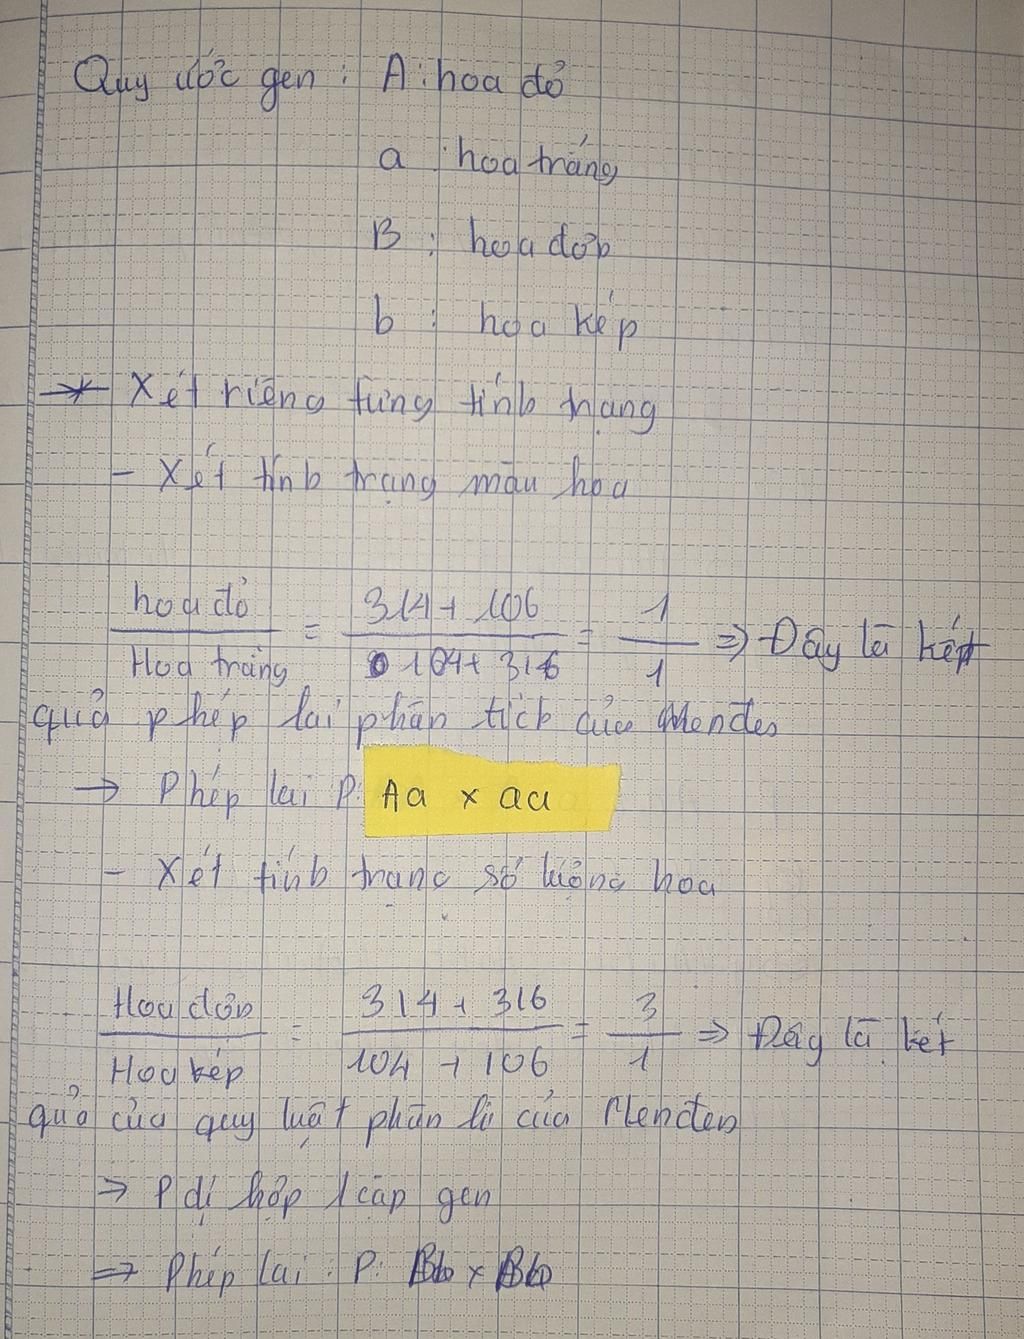 Quy ước gen : A : hoa đỏ
a : hoa trắng
B : hoa đơn
b : hoa kép
* Xét riêng từng tính trạng
- Xét tính trạng màu hoa
hoa đỏ / Hoa trắng = 314 + 106 / 104 + 316 = 1 / 1 => Đây là kết
quả phép lai phân tích của Menden
→ Phép lai P: Aa x aa
- Xét tính trạng số lượng hoa
Hoa đơn / Hoa kép = 314 + 316 / 104 + 106 = 3 / 1 => Đây là kết
quả của quy luật phân li của Menden
=> P dị hợp 1 cặp gen
=> Phép lai : P: Bb x Bb